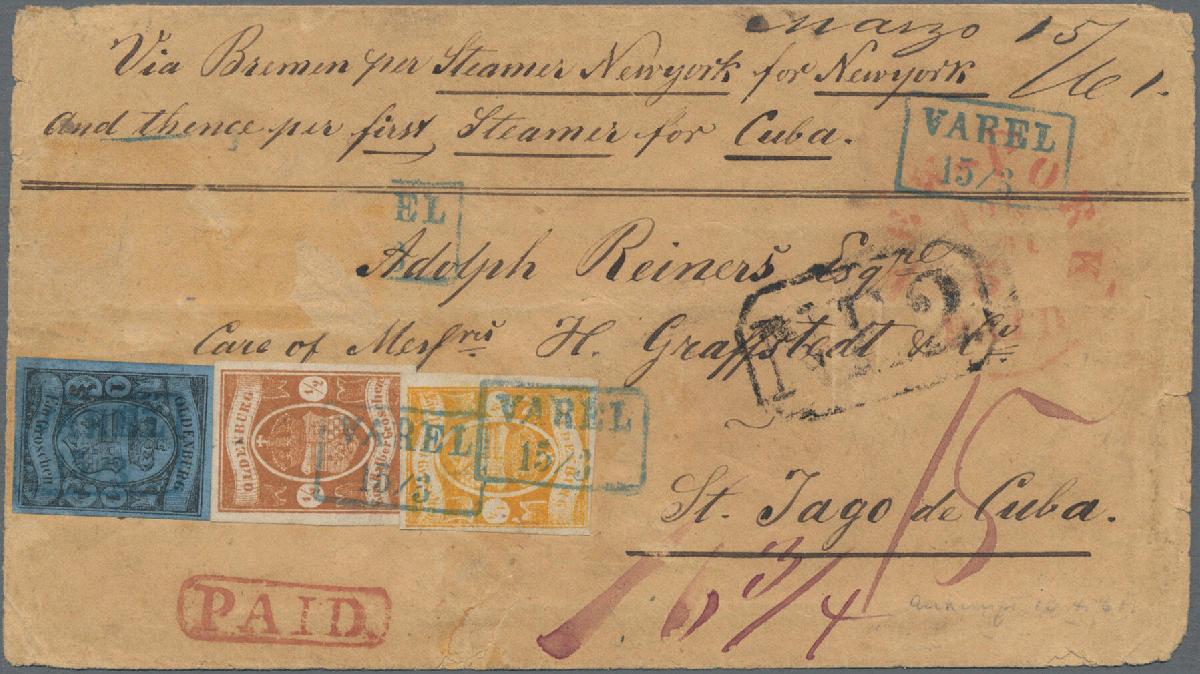 Marzo 15/61.
Via Bremen per Steamer Newyork for Newyork
and thence per first Steamer for Cuba.
VAREL
15/3
EL
3
Adolph Reiners Esqre
Care of Messrs H. Graffstedt & Co
OLDENBURG
Ein Groschen
1
OLDENBURG
1/2
VAREL
15/3
VAREL
15/3
St. Jago de Cuba.
PAID.
16 3/4
15